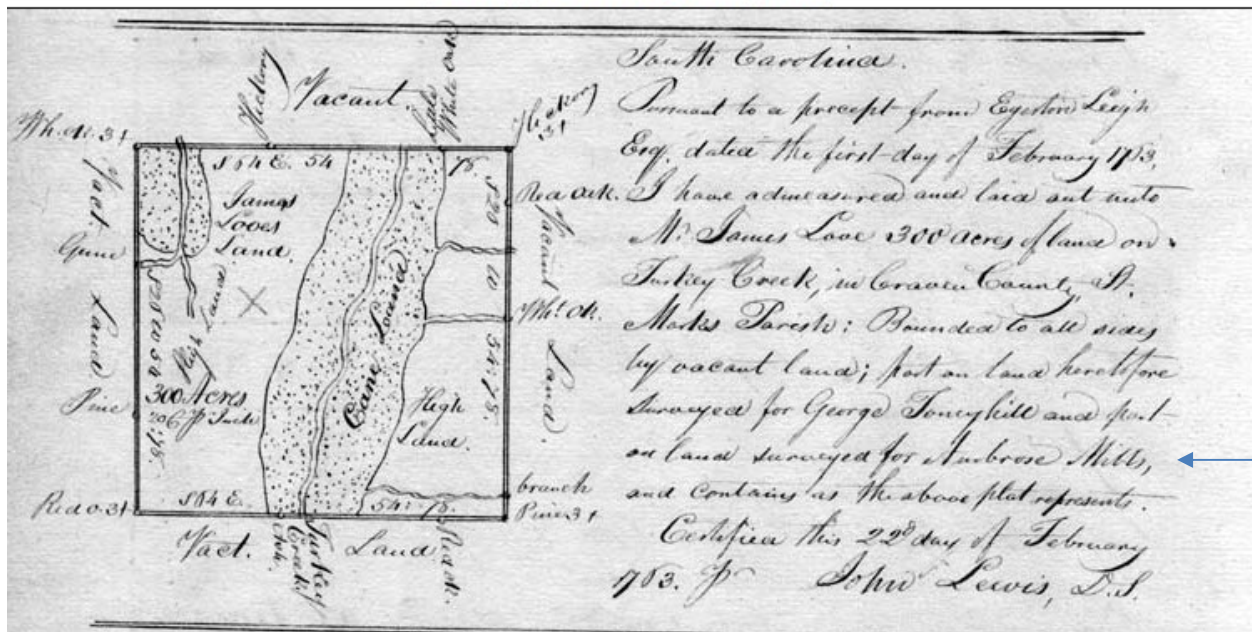 Hickory
Vacant
White Oak
Hickory
3+
Wh. ok. 3+
S 64 E. 54
78.
James
Loves
Land.
Vact.
Land
Gume
High Land
300 Acres
Pine
Red o. 3+
S 64 E.
54.
78.
Cane Land
High
Land.
Red oak.
Vacant
Land.
Wht. ok.
branch
Pine 3+
Vact.
Turkey
Creek
Land
Red ok.
South Carolina.
Pursuant to a precept from Egerton Leigh
Esq. dated the first day of February 1763,
I have admeasured and laid out unto
Mr. James Love 300 acres of land on
Turkey Creek, in Craven County, St.
Marks Parish: Bounded to all sides
by vacant land; part on land heretofore
surveyed for George Toneyhill and part
on land surveyed for Ambrose Mills,
and contains as the above plat represents.
Certified this 22d day of February
1763. P John Lewis, D.S.